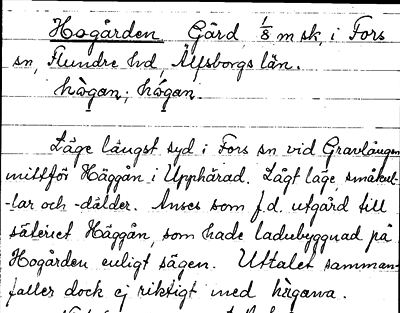 Hogården Gård 1/8 m sk, i Fors
sn, Flundre hd, Älfsborgs län.
hògan, hógan.
Läge längst syd i Fors sn vid Gravlången
mittför Häggån i Upphärad. Lågt läge, småkul-
-lar och -dälder. Anses som f.d. utgård till
säteriet Häggån, som hade ladubyggnad på
Hogården enligt sägen. Uttalet samman-
faller dock ej riktigt med hògarna.